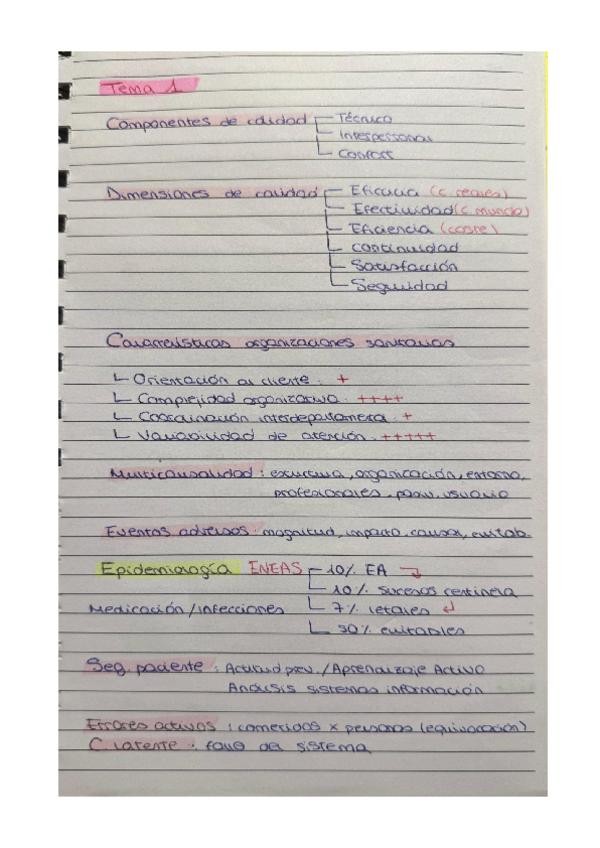 Tema 1
Componentes de calidad Técnico
Interpersonal
Confort
Dimensiones de calidad Eficacia (c. reales)
Efectividad (c. mundo)
Eficiencia (coste)
Continuidad
Satisfacción
Seguridad
Características organizaciones sanitarias
Orientación al cliente : +
Complejidad organizativa : ++++
Coordinación interdepartamental : +
Variabilidad de atención : +++++
Multicausalidad : estructura, organización, entorno,
profesionales, usuario
Eventos adversos : magnitud, impacto, causas, evitab.
Epidemiología ENEAS 10% EA
10% sucesos centinela
Medicación / infecciones 7% letales
50% evitables
Seg. paciente : Actitud prev. / Aprendizaje Activo
Análisis sistemas información
Errores activos : cometidos x personas (equivocación)
C latente : fallo del sistema